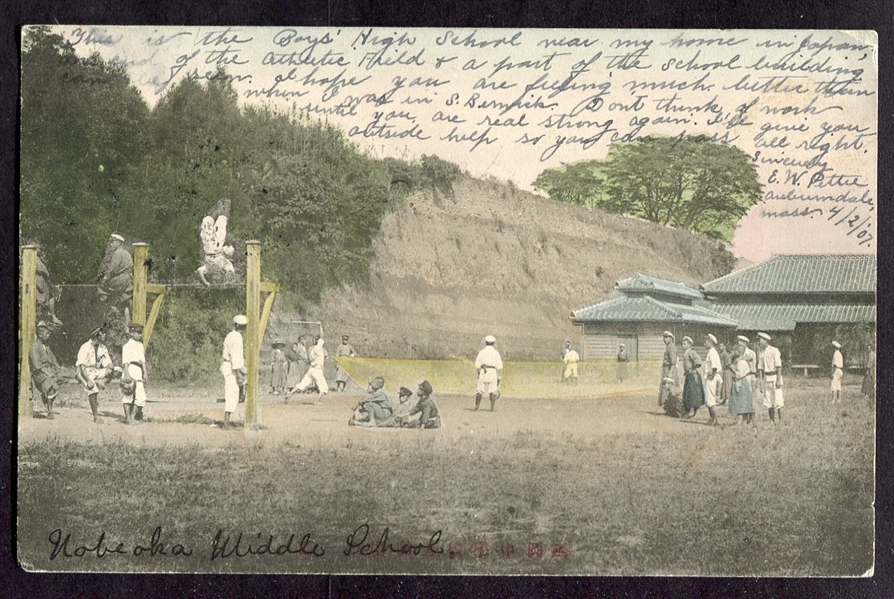 This is the Boys' High School near my home in Japan,
end of the athletic Field & a part of the school building
can be seen. I hope you are feeling much better than
when I was in S. Don't think of work
until you are real strong again. I'll give you
outside help so you can pass all right.
Sincerely
E. W. Pettee
Auburndale,
Mass. 4/2/07.
Nobeoka Middle School